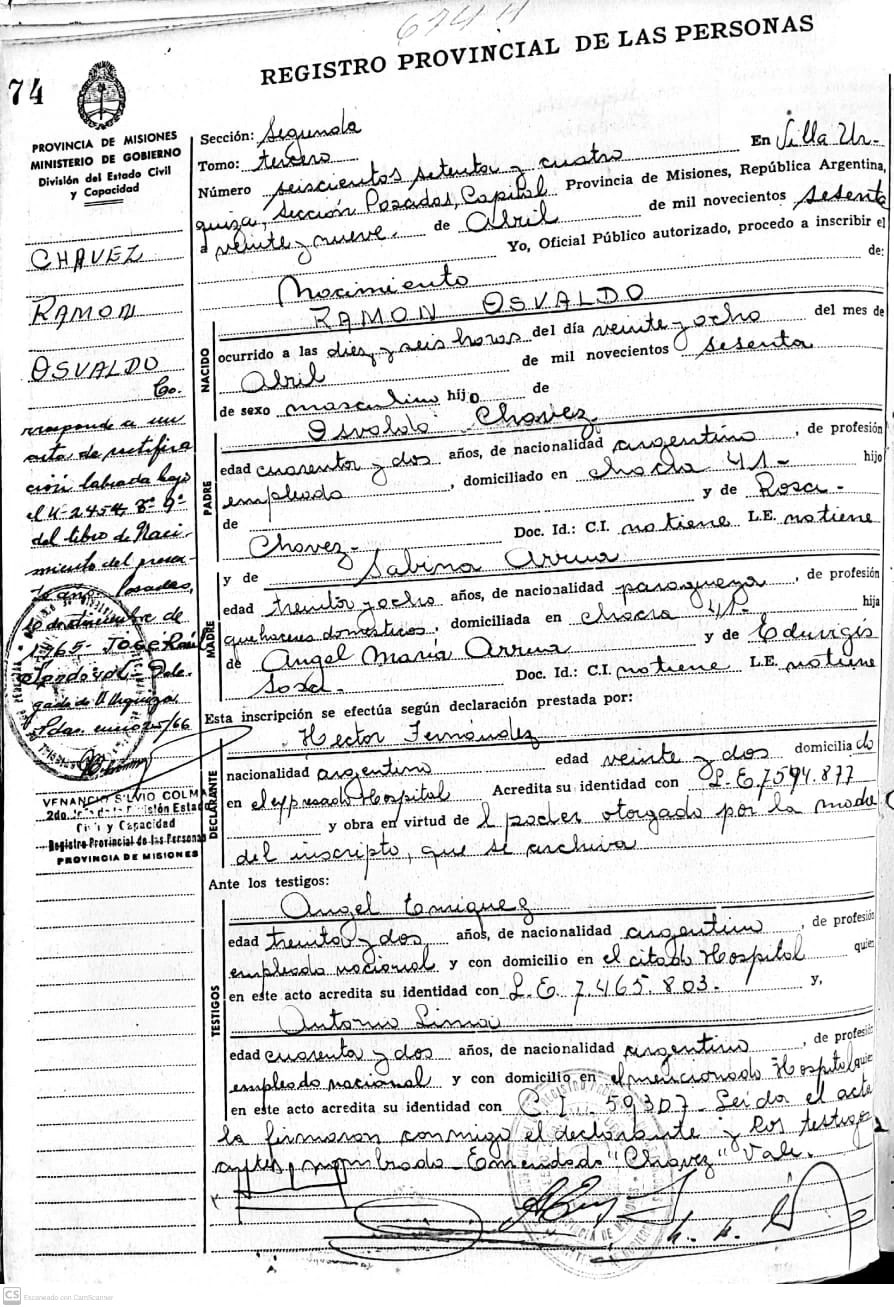 674 H
REGISTRO PROVINCIAL DE LAS PERSONAS
74
PROVINCIA DE MISIONES
MINISTERIO DE GOBIERNO
División del Estado Civil
y Capacidad
CHAVEZ
RAMON
OSVALDO
Co.
rresponde a un
acta de rectifica
ción labrada bajo
el Nº 2454
del libro de Naci-
miento del presen-
Posadas,
de
1965 - José Raúl
Sandoval Dele-
gado de V. Urquiza
Pdas. enero 25/66
VENANCIO SILVIO COLMA
2do. División Estado
Civil y Capacidad
Registro Provincial de las Personas
PROVINCIA DE MISIONES
Sección: Segunda
Tomo: tercero
Número seiscientos setenta y cuatro En Villa Ur-
quiza, Sección Posadas, Capital Provincia de Misiones, República Argentina,
a veinte y nueve. de Abril de mil novecientos sesenta
Yo, Oficial Público autorizado, procedo a inscribir el
Nacimiento de:
NACIDO
RAMON OSVALDO
ocurrido a las diez y seis horas del día veinte y ocho del mes de
Abril de mil novecientos sesenta
de sexo masculino hijo de
PADRE
Osvaldo Chavez
edad cuarenta y dos años, de nacionalidad argentino, de profesión
empleado, domiciliado en chacra 41- hijo
de y de Rosa -
Chavez- Doc. Id.: C.I. no tiene L.E. no tiene
MADRE
y de Sabina Arrua
edad treinta y ocho años, de nacionalidad paraguaya, de profesión
quehaceres domésticos, domiciliada en chacra 41- hija
de Angel María Arrua y de Eduvigis
Sosa. Doc. Id.: C.I. no tiene L.E. no tiene
Esta inscripción se efectúa según declaración prestada por:
DECLARANTE
Hector Fernández
nacionalidad argentino edad veinte y dos domiciliado
en el expresado Hospital Acredita su identidad con L.E. 7594.877
y obra en virtud de l poder otorgado por la madre
del inscripto, que se archiva
Ante los testigos:
TESTIGOS
Angel Enriquez
edad treinta y dos años, de nacionalidad argentino, de profesión
empleado nacional y con domicilio en el citado Hospital quien
en este acto acredita su identidad con L.E. 7.465.803. y,
Antonio Lima
edad cuarenta y dos años, de nacionalidad argentino, de profesión
empleado nacional y con domicilio en el mencionado Hospital quien
en este acto acredita su identidad con C.I. 59307- Leída el acta
la firmaron conmigo el declarante y los testigos
antes nombrado- Enmendado "Chavez" Vale.
CS Escaneado con CamScanner